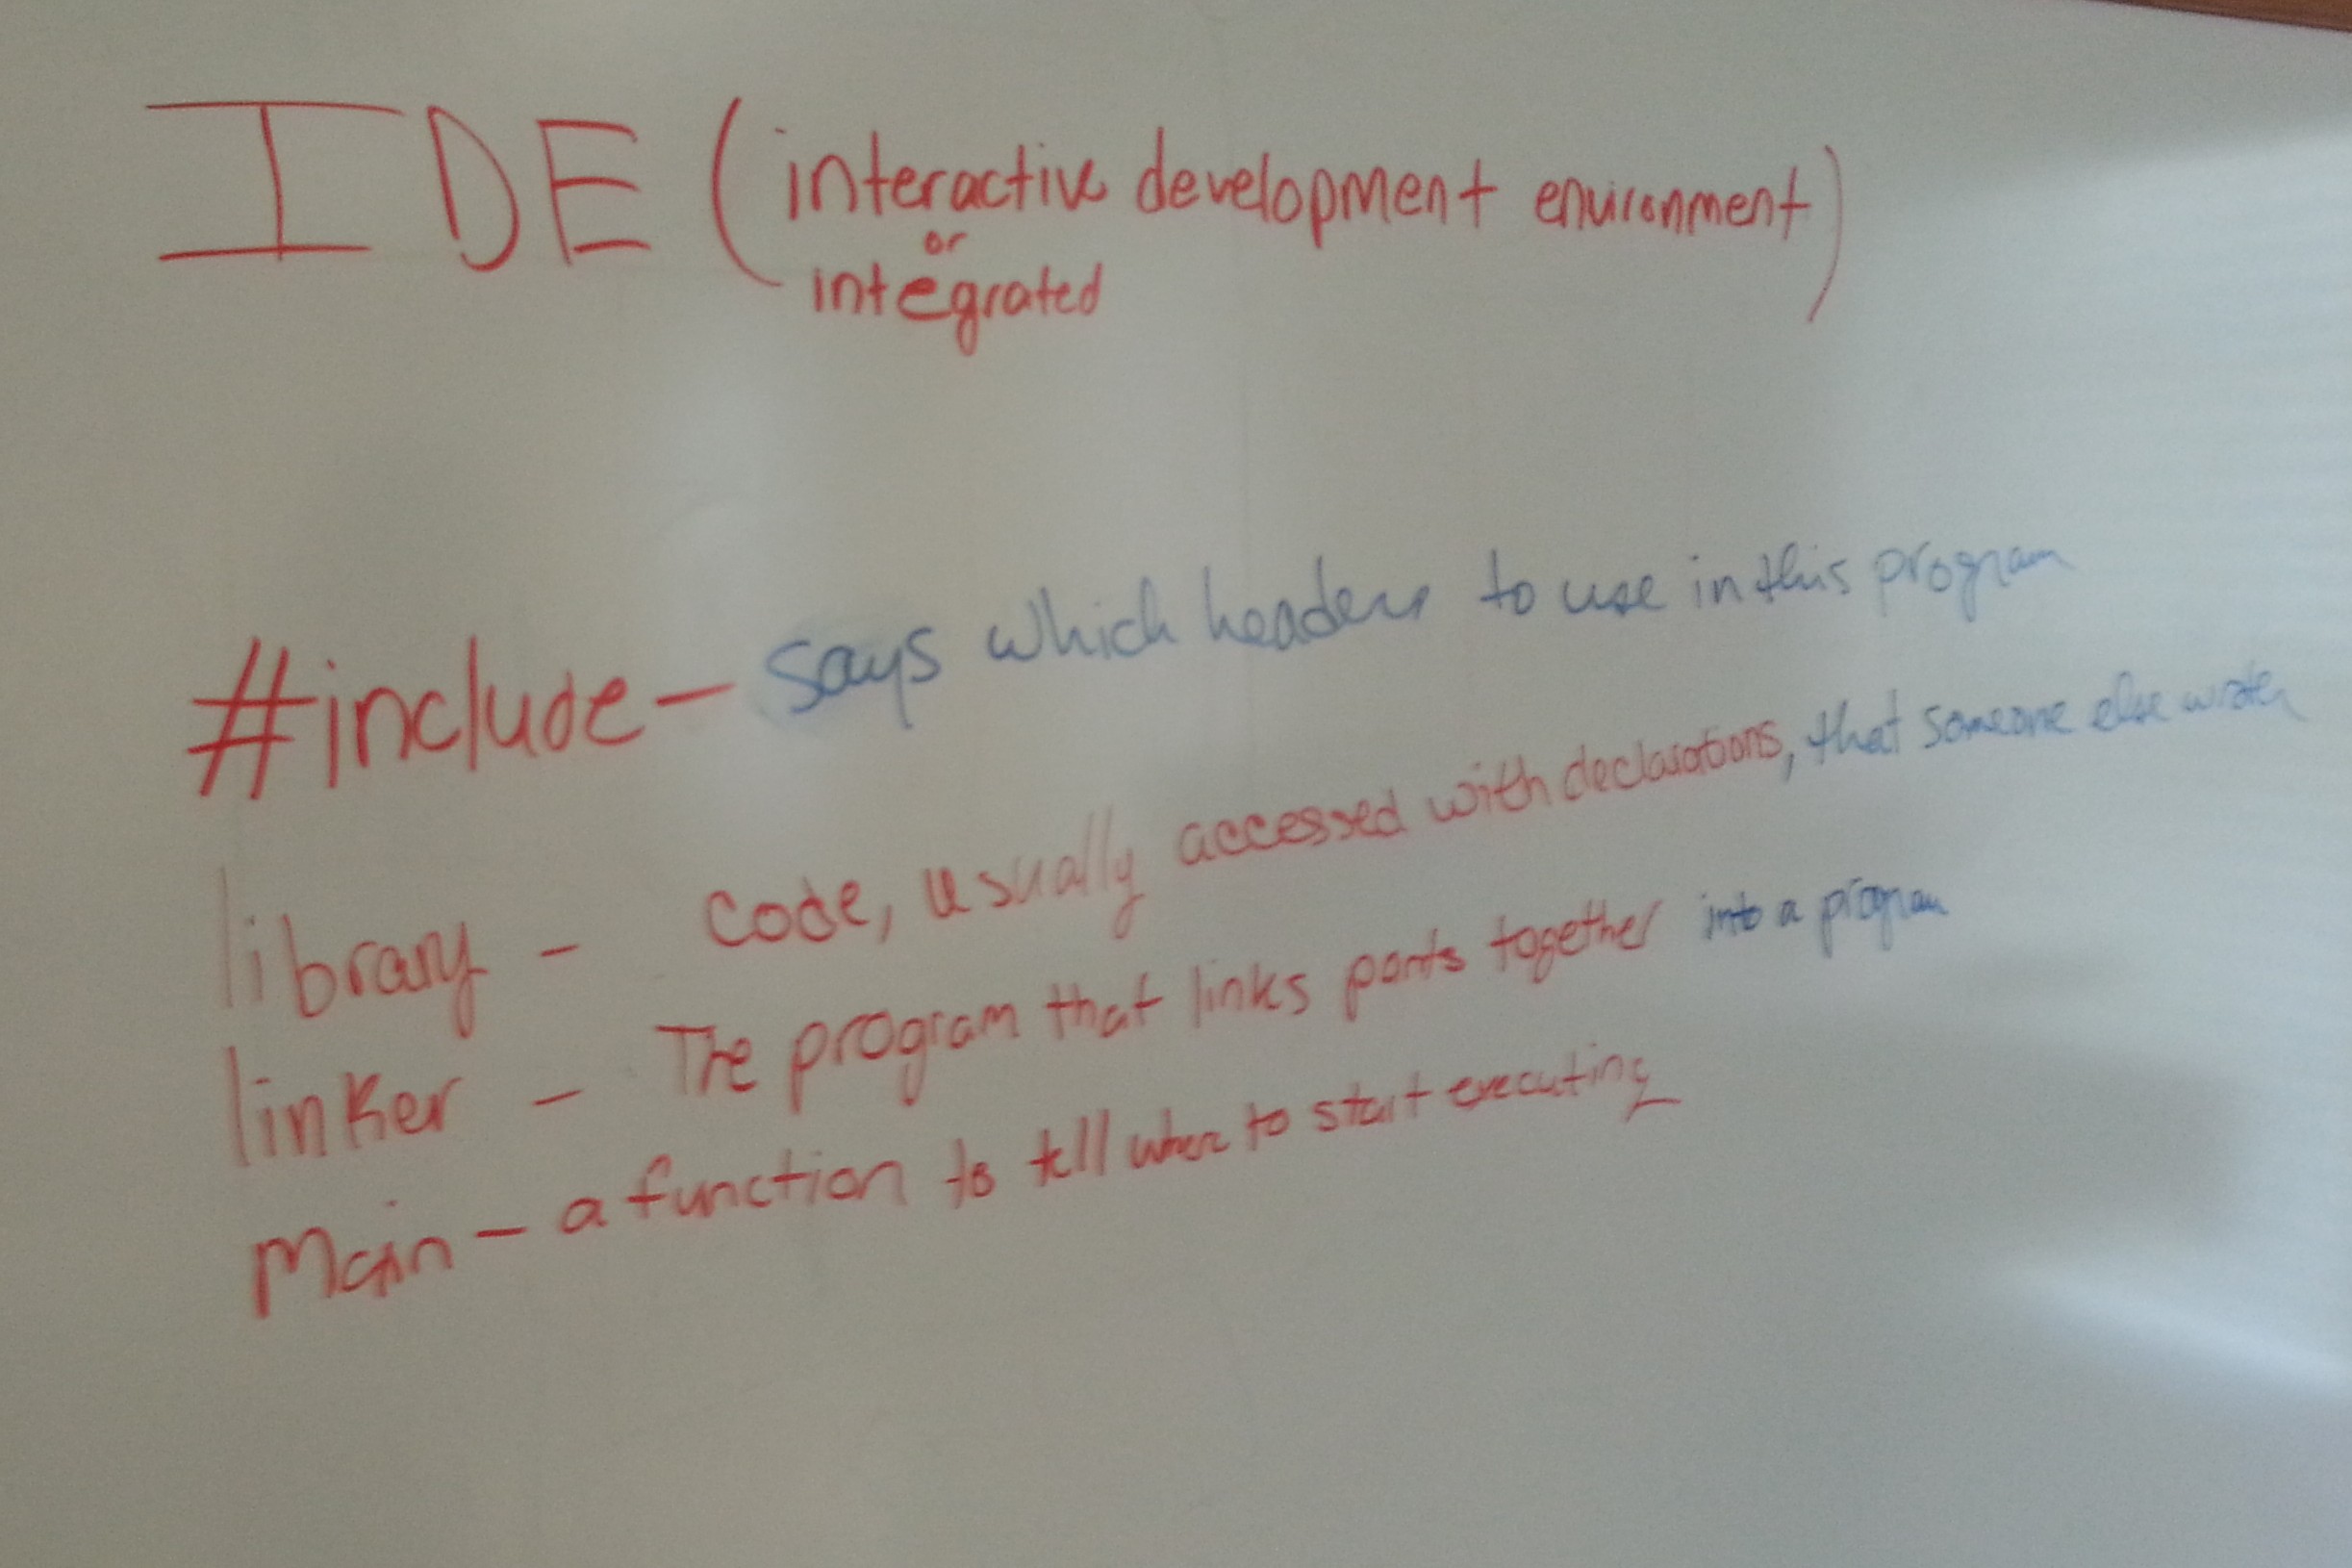 IDE (interactive development environment)
or
integrated
#include - says which headers to use in this program
library - code, usually accessed with declarations, that someone else wrote
linker - The program that links parts together into a program
Main - a function to tell where to start executing